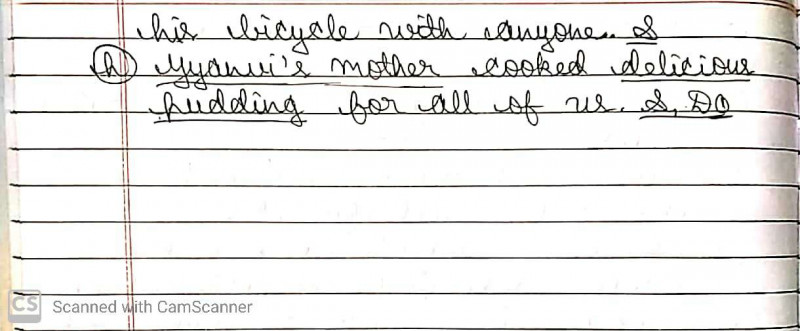 his bicycle with anyone. S
(h) Gyanvi's mother cooked delicious
pudding for all of us. S, DO
CS Scanned with CamScanner